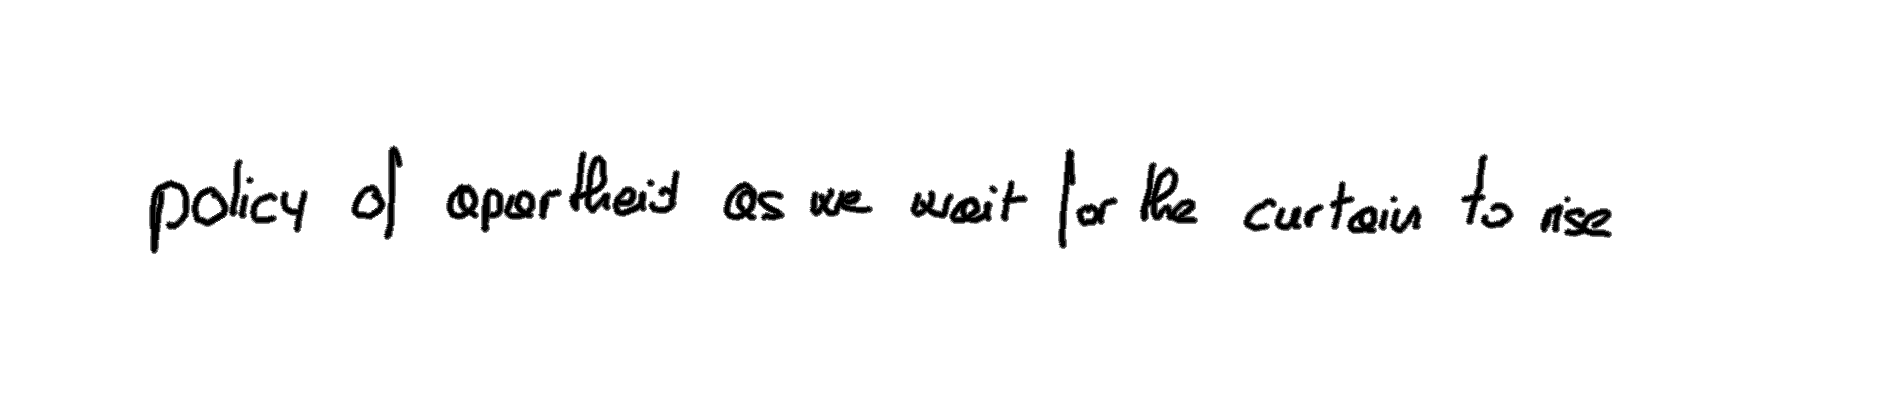 policy of apartheid as we wait for the curtain to rise